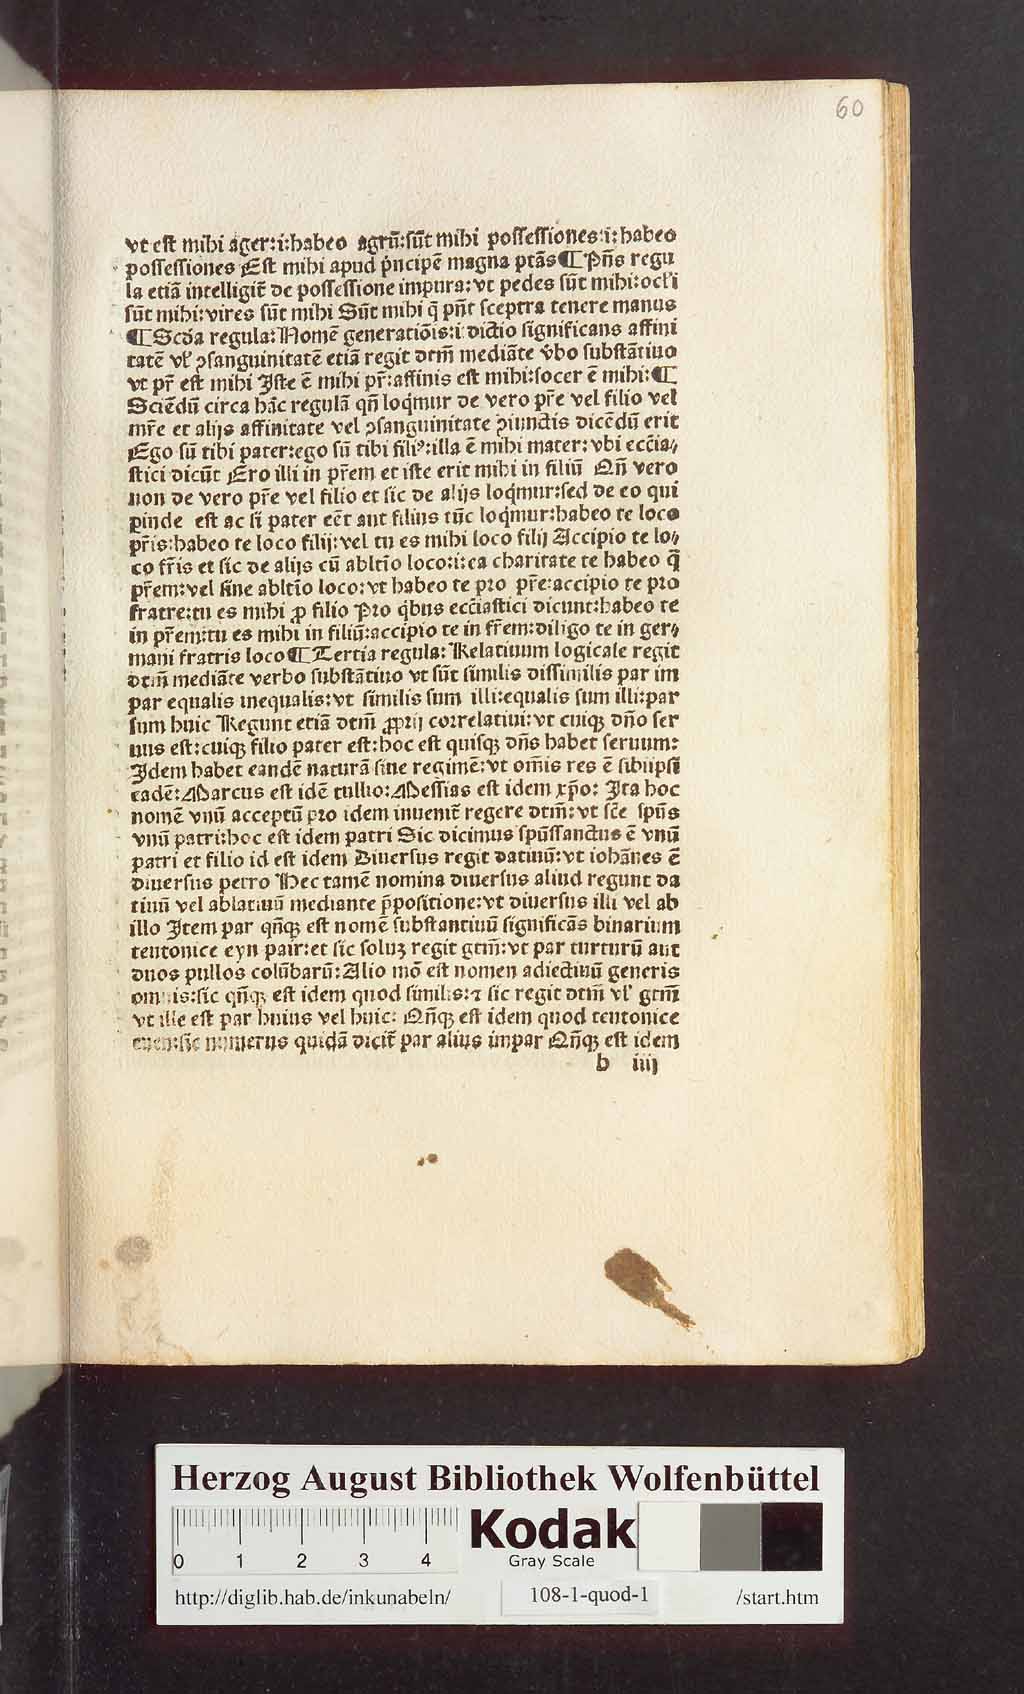 60
vt est mihi ager:i:habeo agrū:sūt mihi possessiones:i:habeo
possessiones Est mihi apud p̍ncipē magna ptās ¶ Pn̄s regu
la etiā intelligit̄ de possessione impura:vt pedes sūt mihi:ocl̄i
sūt mihi:vires sūt mihi Sūt mihi q̄ pn̄t sceptra tenere manus
¶ Scd̄a regula:Nomē generatiōis:i:dictio significans affini
tatē vl̄ ꝯsanguinitatē etiā regit dtm̄ mediāte v̍bo substātiuo
vt pr̄ est mihi Iste ē mihi pr̄:affinis est mihi:socer ē mihi:¶
Sciēdū circa hāc regulā qn̄ loq̍mur de vero pr̄e vel filio vel
mr̄e et alijs affinitate vel ꝯsanguinitate ꝯiunctis dicēdū erit
Ego sū tibi pater:ego sū tibi filiꝰ:illa ē mihi mater:vbi ecc̄ia⸗
stici dicūt Ero illi in pr̄em et iste erit mihi in filiū Qn̄ vero
non de vero pr̄e vel filio et sic de alijs loq̍mur:sed de eo qui
ꝑinde est ac si pater eēt aut filius tūc loq̍mur:habeo te loco
pr̄is:habeo te loco filij:vel tu es mihi loco filij Accipio te lo⸗
co fr̄is et sic de alijs cū abltīo loco:i:ea charitate te habeo q̄
pr̄em:vel sine abltīo loco:vt habeo te pro pr̄e:accipio te pro
fratre:tu es mihi ꝓ filio Pro q̍bus ecc̄iastici dicunt:habeo te
in pr̄em:tu es mihi in filiū:accipio te in fr̄em:diligo te in ger⸗
mani fratris loco ¶ Tertia regula:Relatiuum logicale regit
dtm̄ mediāte verbo substātiuo vt sūt similis dissimilis par im
par equalis inequalis:vt similis sum illi:equalis sum illi:par
sum huic Regunt etiā dtm̄ ꝓprij correlatiui:vt cuiqꝫ dn̄o ser
uus est:cuiqꝫ filio pater est:hoc est quisqꝫ dn̄s habet seruum:
Idem habet eandē naturā sine regimē:vt om̄is res ē sibiipsi
eadē:Marcus est idē tullio:Messias est idem xp̄o: Ita hoc
nomē vnū acceptū pro idem inuenit̄ regere dtm̄:vt sc̄e sp̄us
vnū patri:hoc est idem patri Sic dicimus sp̄ussanctus ē vnū
patri et filio id est idem Diuersus regit datiuū:vt iohānes ē
diuersus petro Hec tamē nomina diuersus aliud regunt da
tiuū vel ablatiuū mediante p̄positione:vt diuersus illi vel ab
illo Item par qn̄qꝫ est nomē substantiuū significās binarium
teutonice eyn pair:et sic soluꝫ regit gtm̄:vt par turturū aut
duos pullos colūbarū:Alio mō est nomen adiectiuū generis
omnis:sic qn̄qꝫ est idem quod similis:⁊ sic regit dtm̄ vl̄ gtm̄
vt ille est par huius vel huic: Qn̄qꝫ est idem quod teutonice
euen:sic numerus quidā dicit̄ par alius impar Qn̄qꝫ est idem
b iiij
Herzog August Bibliothek Wolfenbüttel
0 1 2 3 4
Kodak
Gray Scale
http://diglib.hab.de/inkunabeln/ 108-1-quod-1 /start.htm